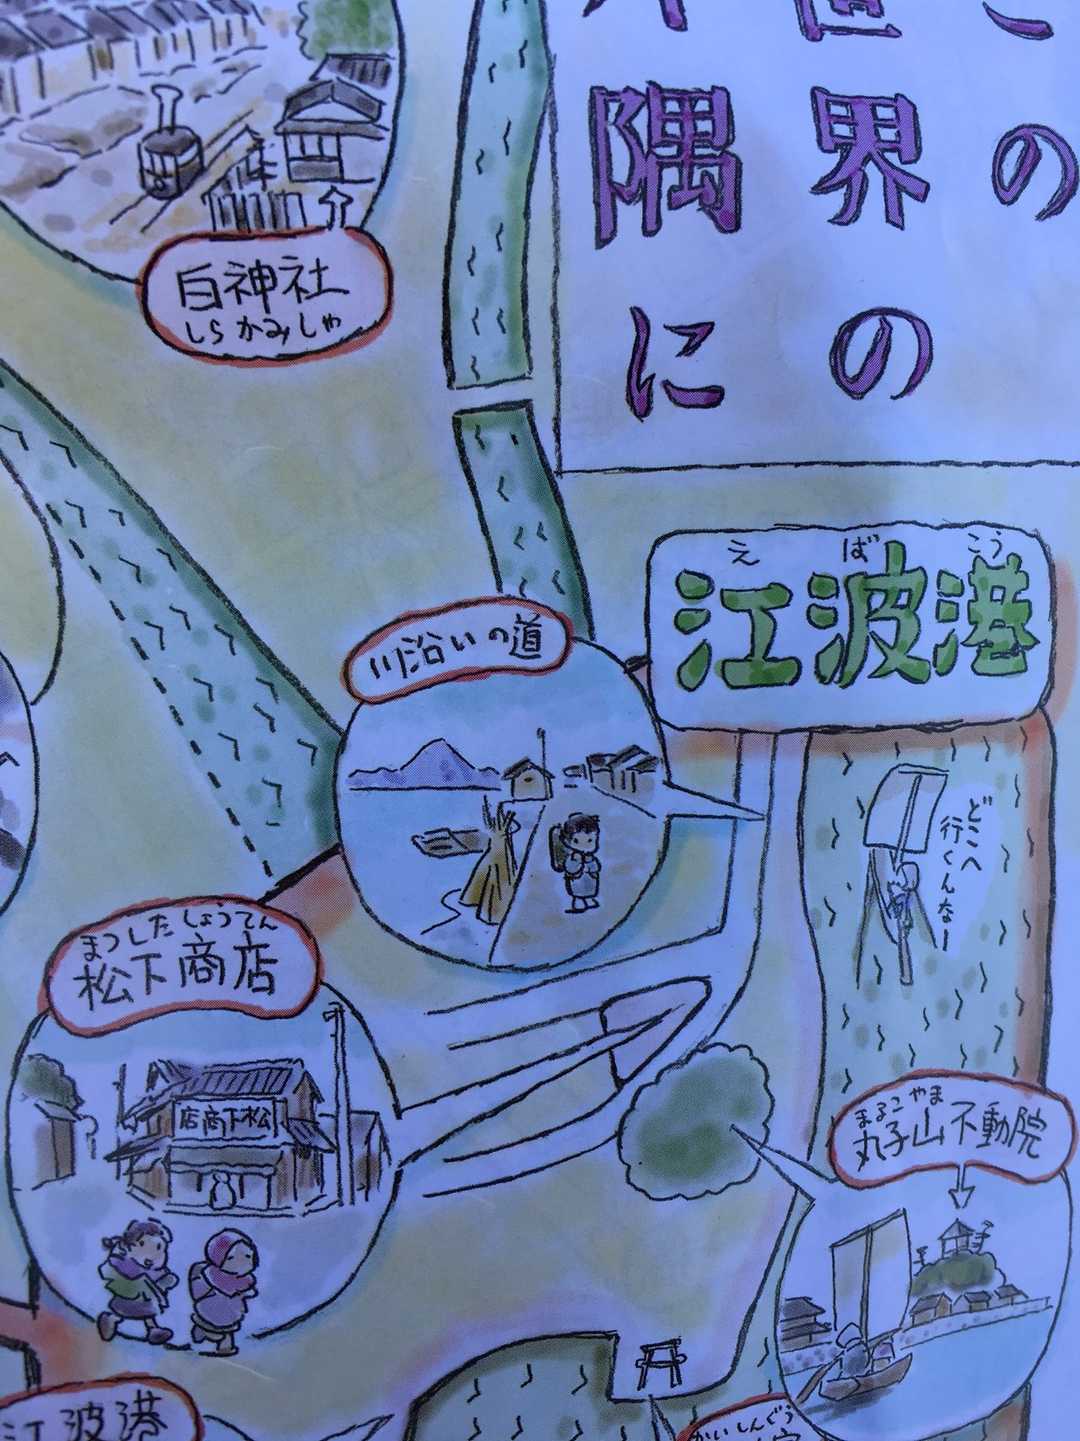 この
世界の
片隅に
白神社
しらかみしゃ
えばこう
江波港
川沿いの道
どこへ
行くんなー
まつしたしょうてん
松下商店
店商下松
まるこやま
丸子山不動院
かいしんぐう
江波港